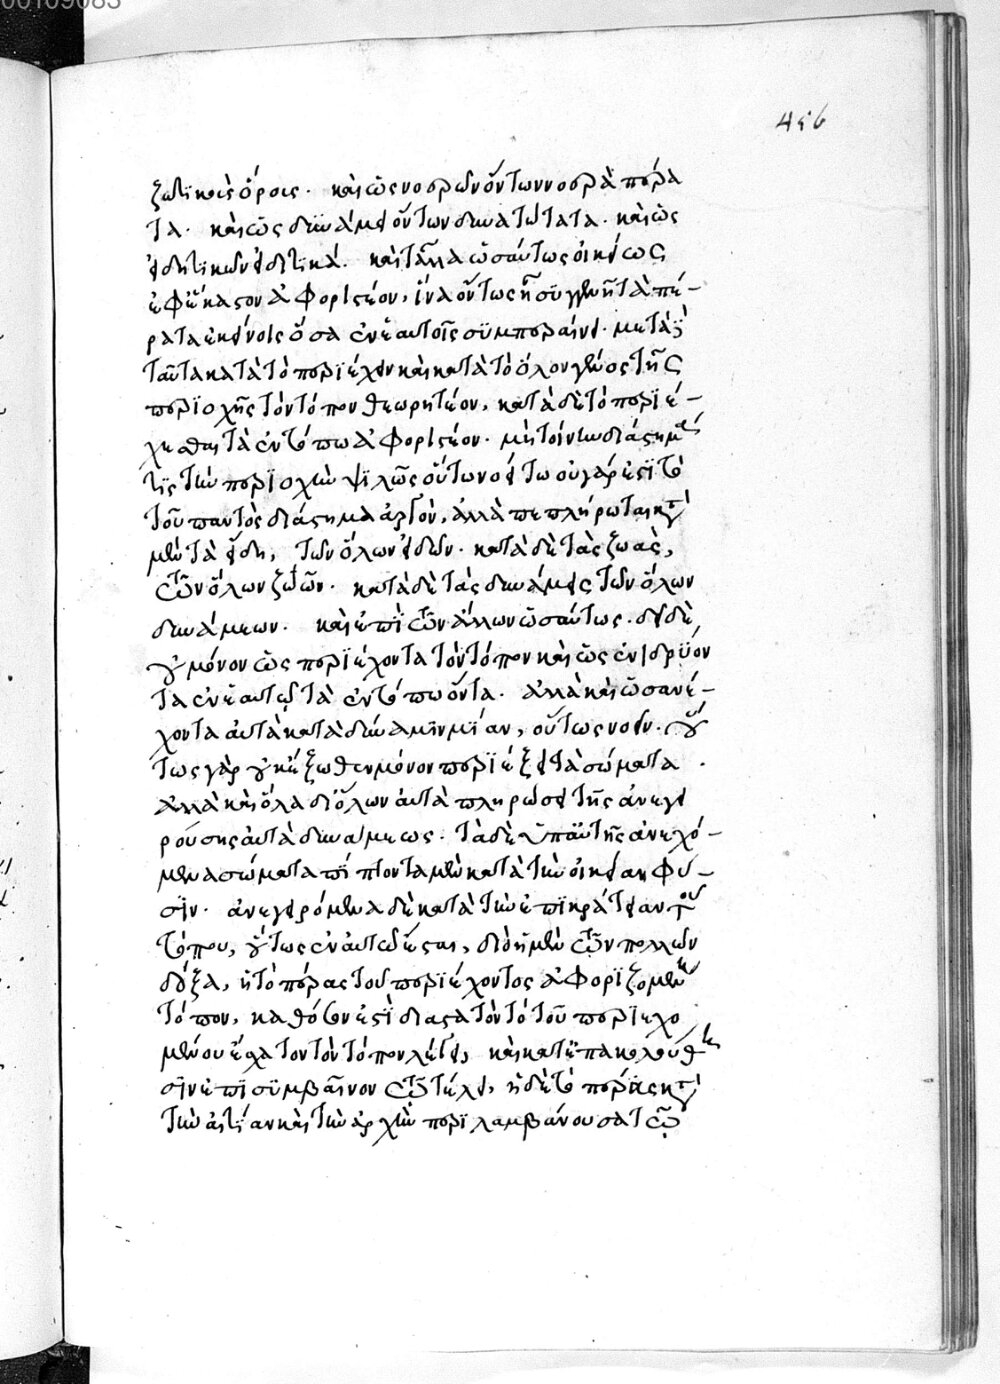 00109083
456
ζωτικοῖς ὅροις. καὶ ὡς νοερῶν ὄντων νοερὰ πέρα
τα. καὶ ὡς δυνάμει ὄντων δυνατώτατα. καὶ ὡς
εἰδητικῶν εἰδητικά. καὶ τἆλλα ὡσαύτως οἰκείως
ἐφ' ἕκαστον ἀφοριστέον, ἵνα οὕτως ᾖ συγγενῆ τὰ πέ-
ρατα ἐκείνοις ὅσα ἐν ἑαυτοῖς συμπεραίνει. μετὰ
ταῦτα κατὰ τὸ περιέχειν καὶ κατὰ τὸ ὅλον γένος τῆς
περιοχῆς τὸν τόπον θεωρητέον, κατὰ δὲ τὸ περιέ-
χεσθαι τὰ ἐν τόπω ἀφοριστέον. μὴ τοίνυν διάστημά
τις τὴν περιοχὴν ψιλῶς οὕτω νοείτω οὐ γάρ ἐστι τὸ
τοῦ παντὸς διάστημα ἀργόν, ἀλλὰ πεπλήρωται κατὰ
μὲν τὰ εἴδη, τῶν ὅλων εἰδῶν. κατὰ δὲ τὰς ζωὰς,
τῶν ὅλων ζωῶν. κατὰ δὲ τὰς δυνάμεις τῶν ὅλων
δυνάμεων. καὶ ἐπὶ τῶν ἄλλων ὡσαύτως. δεῖ δὲ
οὐ μόνον ὡς περιέχοντα τὸν τόπον καὶ ὡς ἐνιδρύον
τα ἐν ἑαυτῷ τὰ ἐν τόπω ὄντα. ἀλλὰ καὶ ὡς ἀνέ-
χοντα αὐτὰ κατὰ δύναμιν μίαν, οὕτως νοεῖν. οὕ
τως γὰρ οὐκ ἔξωθεν μόνον περιέξει τὰ σώματα.
ἀλλὰ καὶ ὅλα δι' ὅλων αὐτὰ πληρώσει τῆς ἀνεγει
ρούσης αὐτὰ δυνάμεως. τὰ δὲ ὑπ' αὐτῆς ἀνεχό-
μενα σώματα πίπτοντα μὲν κατὰ τὴν οἰκείαν φύ-
σιν. ἀνεγειρόμενα δὲ κατὰ τὴν ἐπικράτειαν τοῦ
τόπου, οὕτως ἐν αὐτῶ ἔσται, διὸ ἡ μὲν τῶν πολλῶν
δόξα, ἡ τὸ πέρας τοῦ περιέχοντος ἀφοριζομένη
τόπον, καθ' ὅσον ἐστὶ διὰ τὸν τὸ τοῦ περιεχο
μένου ἔσχατον τὸν τόπον λέγει, καὶ κατ' ἐπακολούθη
σιν ἐπισυμβαῖνον τῷ τέλει, ἡ δὲ τὸ πέρας κατὰ
τὴν αἰτίαν καὶ τὴν ἀρχὴν περιλαμβάνουσα τῷ